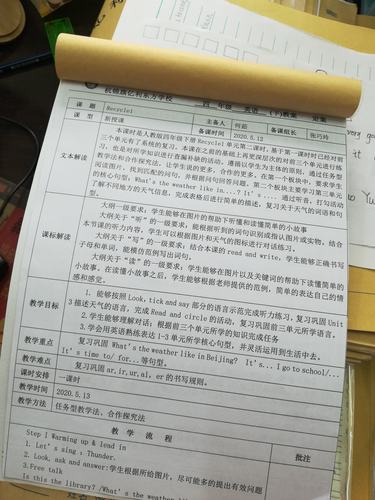 杭锦旗亿利东方学校 四 年级 英语 (下)教案 定案
课 题 Recycle1
课 型 新授课 主备人 何茹 备课组长 张巧玲
备课时间 2020.5.12
文本解读 本课时是人教版四年级下册Recycle1单元第二课时，基于第一课时已经对前
三个单元有了系统的复习，本课在之前的基础上再更深层次的对前三个单元进行练
习，也是对所学知识进行查漏补缺的活动，遵循以学生为主体的原则，通过任务型
教学法和合作探究法，让学生说的更多，合作的更多。在第一个板块中，要求学生
阅读图片，找到匹配的句句，并根据句句回答问题。第二个板块主要学习第三单元
的核心句型，What's the weather like in...? It's .... 通过听音、打勾活动
了解不同地方的天气信息，完成表格后进行简单的描述，复习关于天气的词语和句
型。
课标解读 大纲一级要求：学生能够在图片的帮助下听懂和读懂简单的小故事
大纲关于“听”的一级要求：能根据听到的词句识别或指认图片或实物，结合
本节课的听力内容，学生可以根据图片和天气的图标进行对话练习。
大纲关于“写”的一级要求：结合本课的read and write，学生能够正确书写
字母和单词，能模仿范例写出词句。
大纲关于“读”的一级要求：学生能够在图片以及关键词的帮助下读懂简单的
小故事，在读懂小故事之后，学生能够根据老师提供的范例，简单的表达自己的情
感和感觉。
教学目标 1. 能够按照 Look, tick and say 部分的语言示范完成听力练习，复习巩固 Unit
3 描述天气的语言，完成 Read and circle 的活动，复习巩固前三单元所学语言。
2.学生能够理解对话；根据前三个单元所学的知识完成任务
3.学会用英语熟练表达 1-3 单元所学核心句型，并灵活运用到生活中去。
教学重点 复习巩固 What's the weather like in Beijing? It's... I go to school/...
It's time to/ for...等句型。
教学难点 复习巩固 ar,ir,ur,al, er 的书写规则。
课时安排 一课时
教学时间 2020.5.13
教学方法 任务型教学法，合作探究法
教 学 流 程 批注
Step 1 Warming up & lead in
1. Let's sing : Thunder.
2. Look, ask and answer:学生根据所给图片，尽可能多的提出有效问题
3.Free talk
Is this the library? /What's the weather